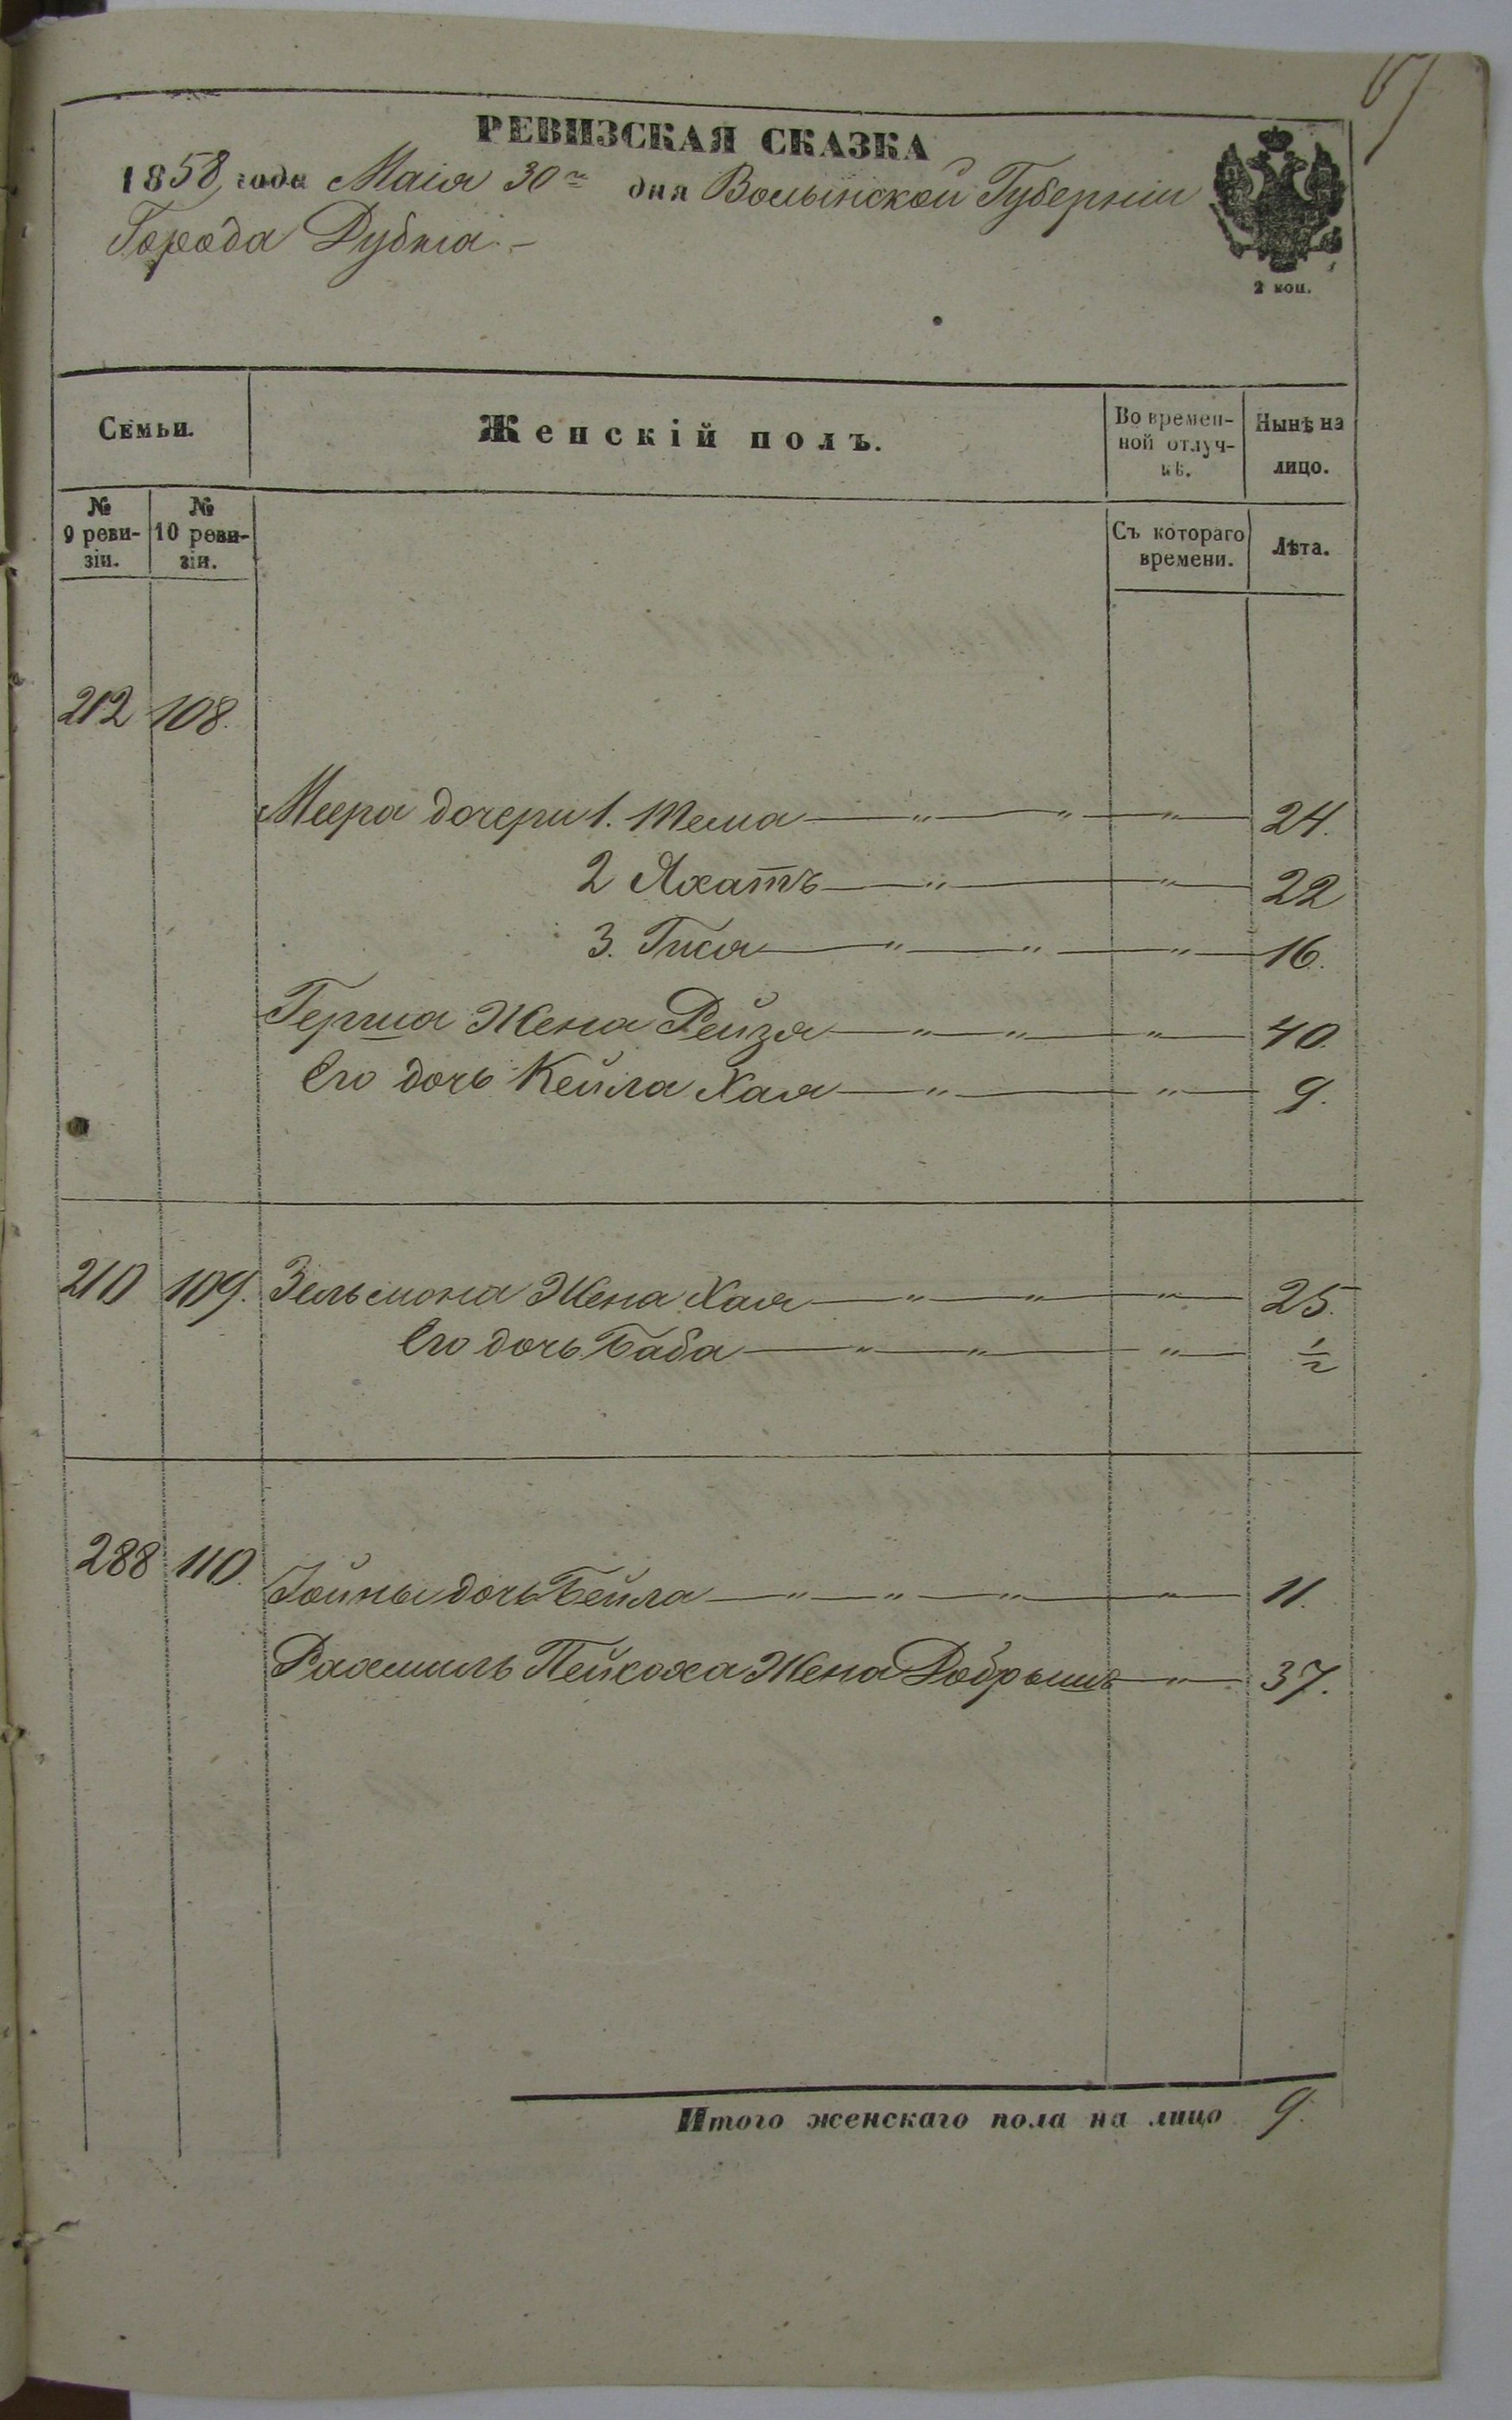 67
РЕВИЗСКАЯ СКАЗКА
1858 года Маія 30го дня Волынской Губерніи
Города Дубна
2 коп.
Семьи.
Женскій полъ.
Во времен-
ной отлуч-
кѣ.
Нынѣ на
лицо.
№
9 реви-
зіи.
№
10 реви-
зіи.
Съ котораго
времени.
Лѣта.
212 108.
Меера дочери 1. Тема 24.
2 Яхатъ 22
3. Гися 16.
Герша Жена Рейзя 40.
Его дочь Кейла Хая 9.
210 109. Зельмона Жена Хая 25.
Его дочь Баба 1/2
288 110.
Іойны дочь Бейла 11.
Рахмиль Пейсаха Жена Добрышъ 37.
Итого женскаго пола на лицо 9.